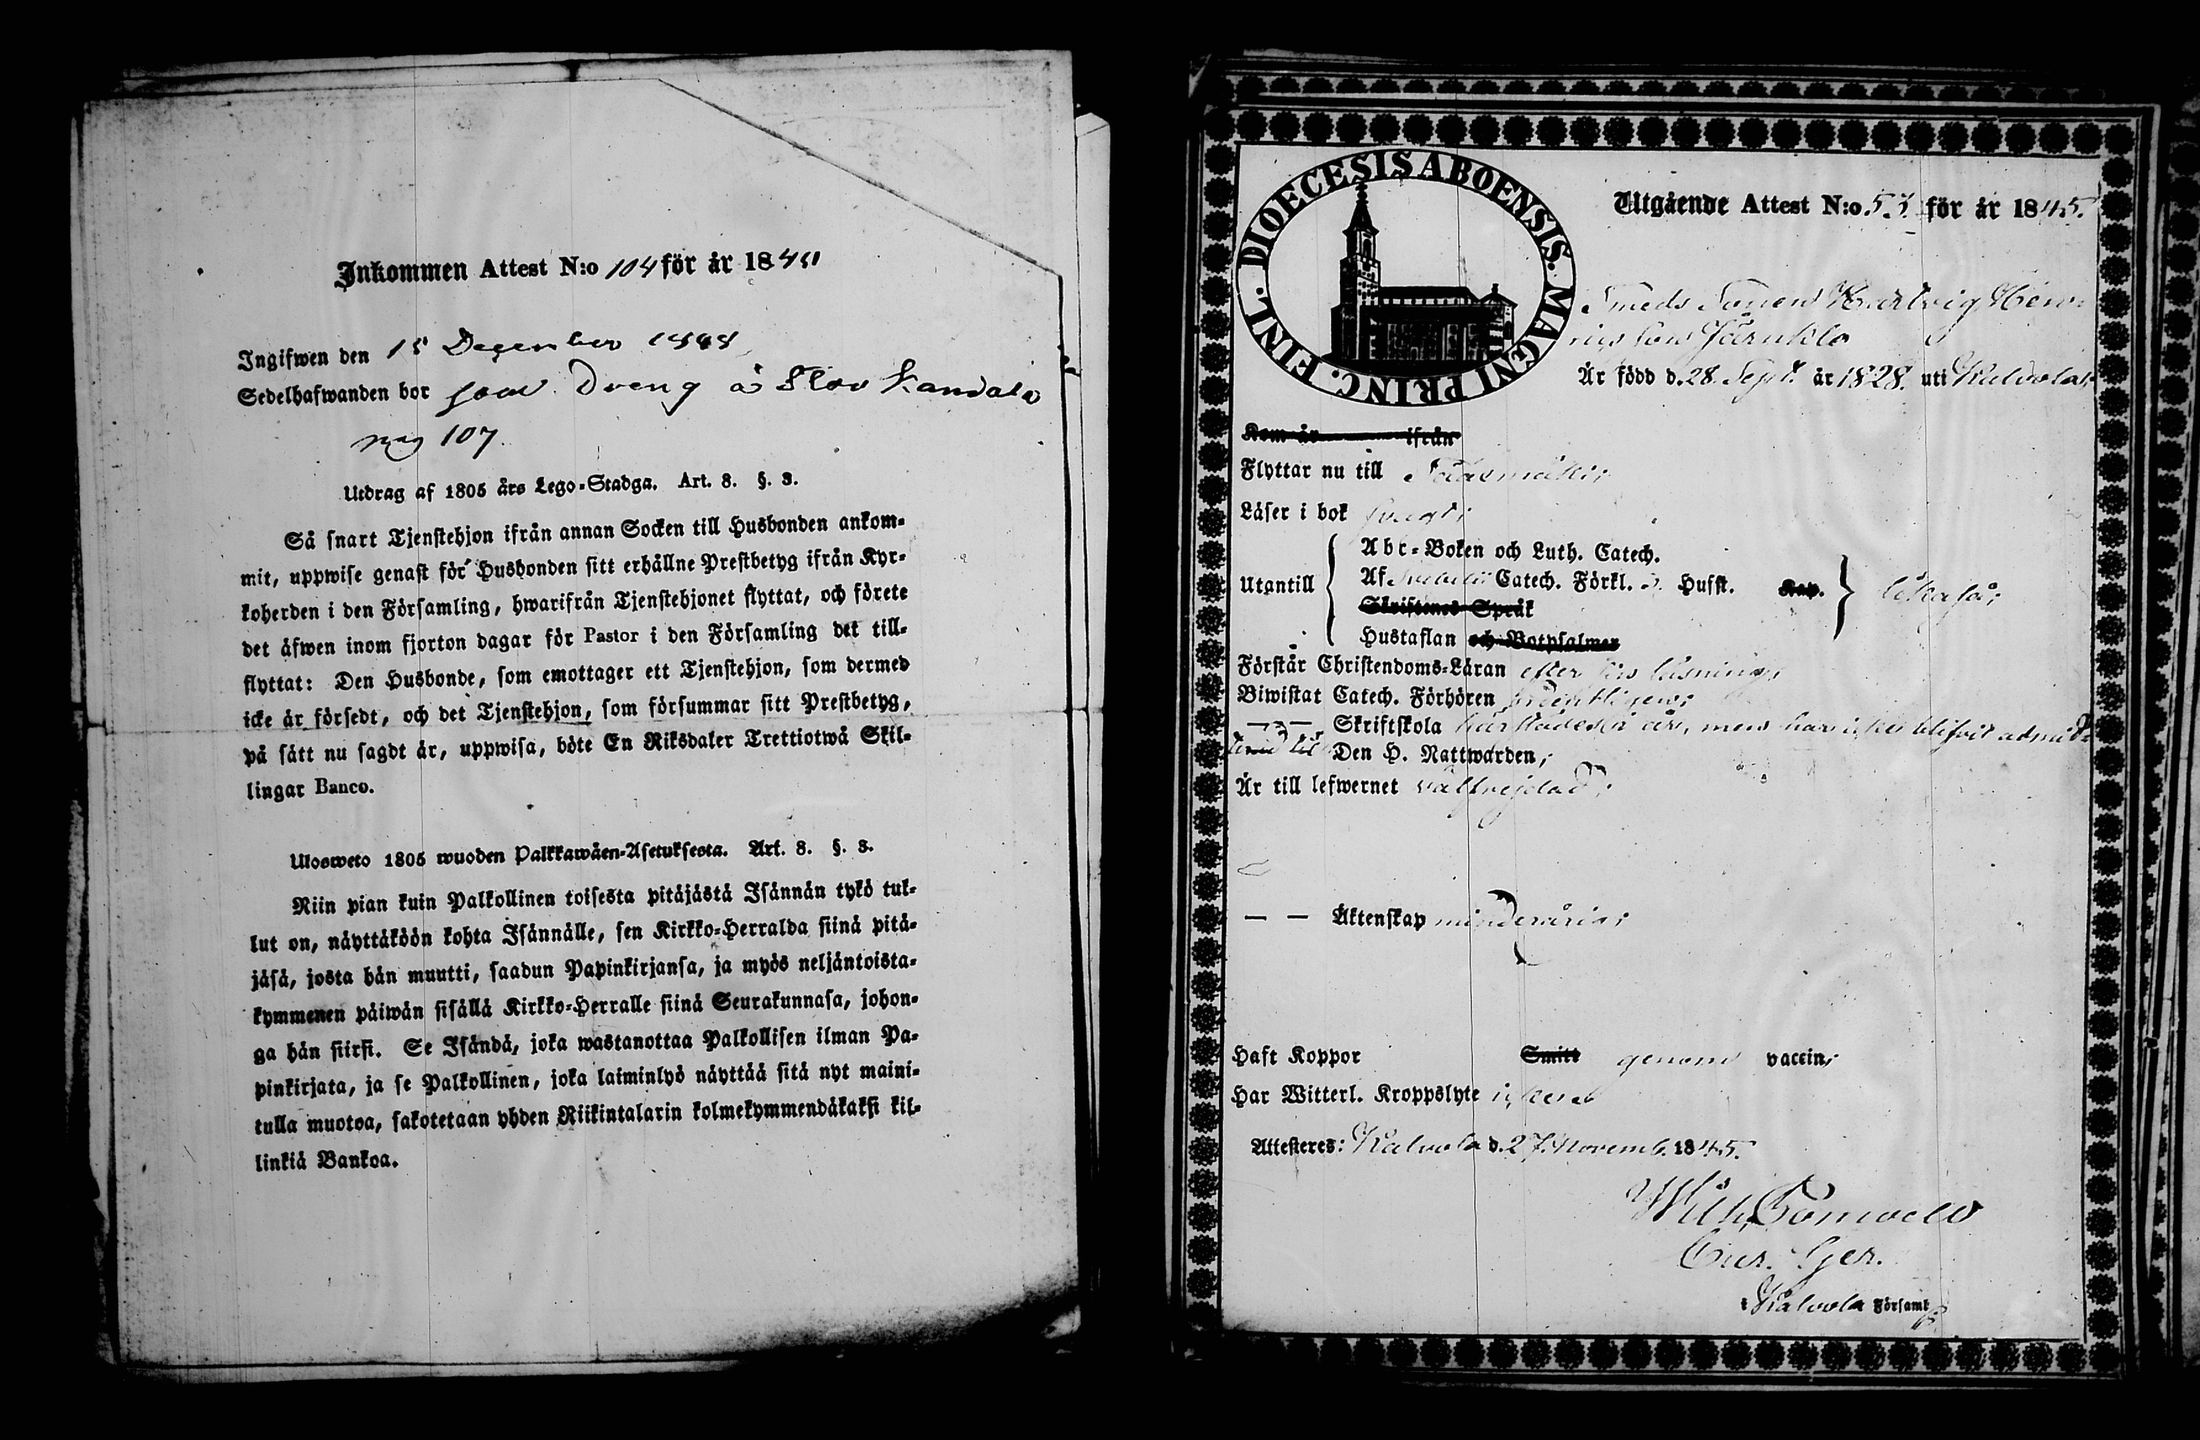 Inkommen Attest N:o 104 för år 184
Ingifwen den 15 December
Sedelhafwanden bor som Dreng å Stor Kandala
pag 107.
Utdrag af 1805 års Lego-Stadga. Art. 8. §. 3.
Så snart Tjenstehjon ifrån annan Socken till Husbonden ankom-
mit, uppwise genast för Husbonden sitt erhållne Prestbetyg ifrån Kyr-
koherden i den Församling, hwarifrån Tjenstehjonet flyttat, och förete
det äfwen inom fjorton dagar för Pastor i den Församling det till-
flyttat: Den Husbonde, som emottager ett Tjenstehjon, som dermed
icke är försedt, och det Tjenstehjon, som försummar sitt Prestbetyg,
på sätt nu sagdt är, uppwisa, böte En Riksdaler Trettiotwå Skil-
lingar Banco.
Ulosweto 1805 wuoden Palkkawäen-Asetuksesta. Art. 8. §. 3.
Niin pian kuin Palkollinen toisesta pitäjästä Isännän tykö tul-
lut on, näyttäköön kohta Isännälle, sen Kirkko-Herralda siinä pitä-
jäsä, josta hän muutti, saadun Papinkirjansa, ja myös neljäntoista-
kymmenen päiwän sisällä Kirkko-Herralle siinä Seurakunnasa, johon-
ga hän siirsi. Se Isändä, joka wastanottaa Palkollisen ilman Pa-
pinkirjata, ja se Palkollinen, joka laiminlyö näyttää sitä nyt maini-
tulla muotoa, sakotetaan yhden Riikintalarin kolmekymmendäkaksi kil-
linkiä Bankoa.
DIOECESIS ABOENSIS. MAGNI PRINC. FINL.
Utgående Attest N:o 53 för år 1845.
Smeds Sonen Hartvig Hen-
rics son Järnklo
Är född d. 28. Sept. år 1828. uti Kalvola;
Kom år ifrån
Flyttar nu till
Läser i bok svagt;
Utantill
Abc-Boken och Luth. Catech.
Af Svebelii Catech. Förkl. 3. Husst. Kap.
Skriftenes Språk
Hustaflan och Botpsalmer
likaså;
Förstår Christendoms-Läran efter sin läsning;
Biwistat Catech. Förhören ordentligen;
— — Skriftskola härstädes i år, men har icke blifvit admit-
terad till Den H. Nattwarden;
Är till lefwernet välfrejdad;
— — Äktenskap minderårig;
Haft Koppor Smitt genom vaccin;
Har Witterl. Kroppslyte icke
Attesteres: Kalvola d. 27. Novemb. 1845.
Wilh.
Cur. Ger.
i Kalvola Församl.